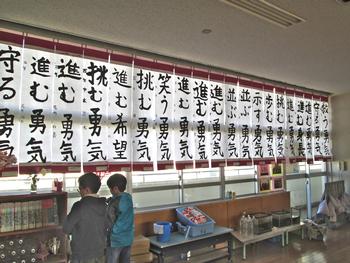 守る勇気
挑む勇気
歩む勇気
示す勇気
並ぶ勇気
並ぶ勇気
進む勇気
進む勇気
進む勇気
笑う勇気
挑む勇気
進む希望
挑む勇気
進む勇気
進む勇気
守る勇気